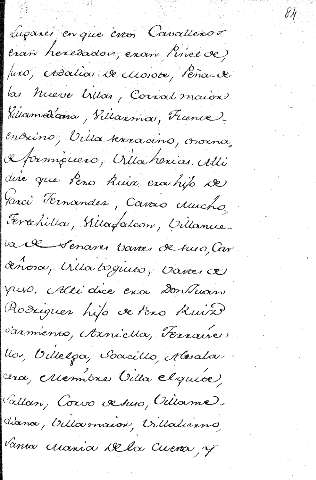 84
Lugares en que estos Cavalleros
eran heredados, eran Rivel de
suso, Adalias de Moros, Peña de
las Nueve Villas, Corral maior
Villamediana, Villarmas, Fuente
endrino, Villa terracino,
formiguero, Villa herias. Alli
dice que Pero Ruiz era hijo de
Garci Fernandez, Castro Mucho,
Torchilla, Villafalcon, Villanue-
va de Senares Vartes de suso, Car
deñosa, Villa toquite, Vartes de
yuso. Alli dice era Don Juan
Rodriguez hijo de Pero Ruiz
Sarmiento, Arniella, Ferraire-
llos, Villelga, Soacillo,
Membre Villa el quite,
Saltan, Corvo de suso, Villame
diana, Villamaior,
Santa Maria de la Cueva, y